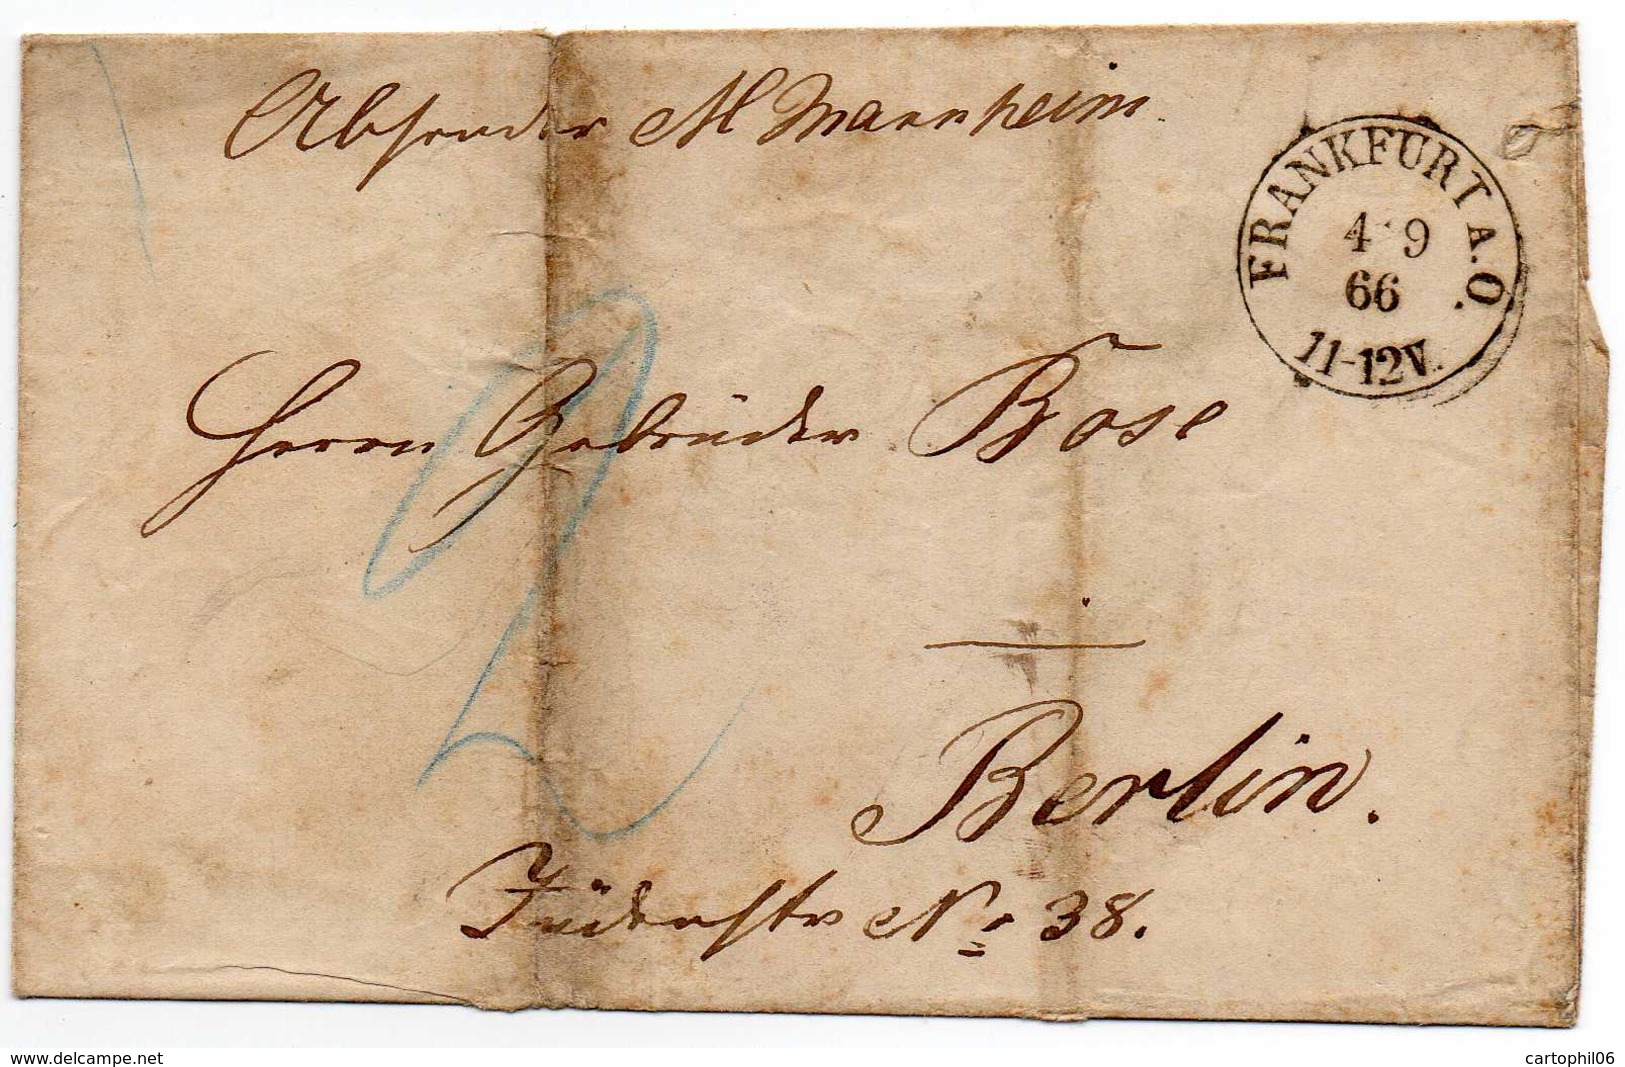 Absender M Mannheim
FRANKFURT A. O.
4 9
66
11-12V.
Herrn Gebrüder Bose
2
Berlin.
Jüdenstr No 38.
www.delcampe.net
cartophil06